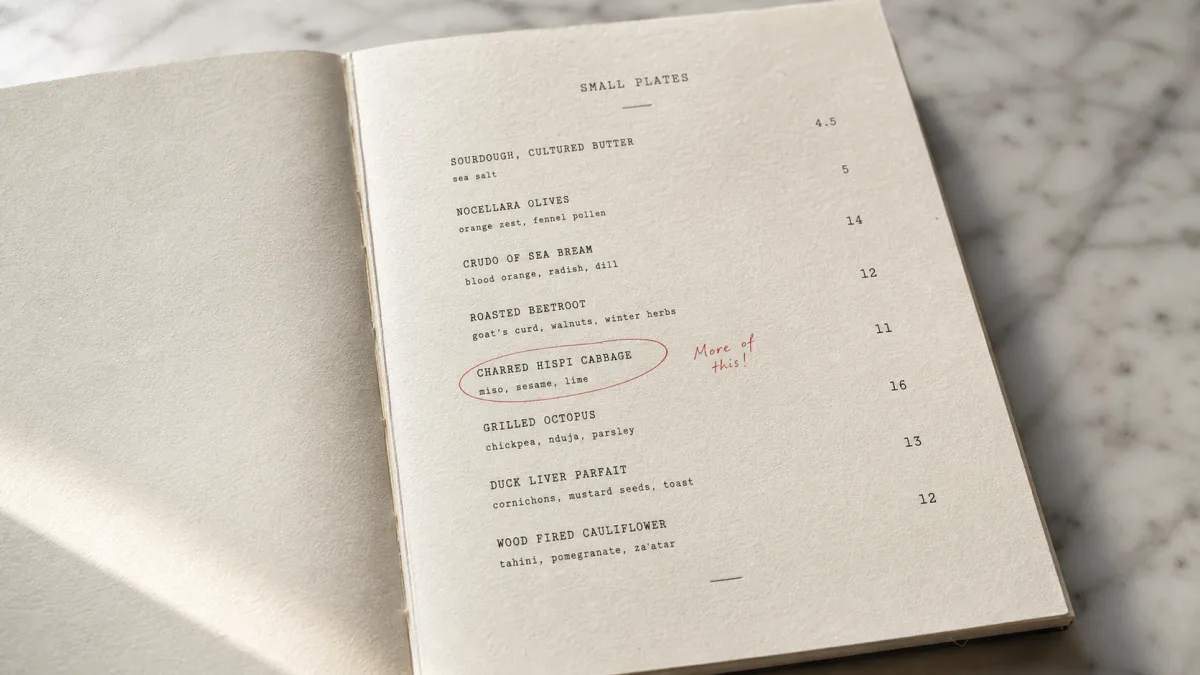 SMALL PLATES
SOURDOUGH, CULTURED BUTTER 4.5
sea salt
NOCELLARA OLIVES 5
orange zest, fennel pollen
CRUDO OF SEA BREAM 14
blood orange, radish, dill
ROASTED BEETROOT 12
goat's curd, walnuts, winter herbs
CHARRED HISPI CABBAGE 11
miso, sesame, lime
More of
this!
GRILLED OCTOPUS 16
chickpea, nduja, parsley
DUCK LIVER PARFAIT 13
cornichons, mustard seeds, toast
WOOD FIRED CAULIFLOWER 12
tahini, pomegranate, za'atar